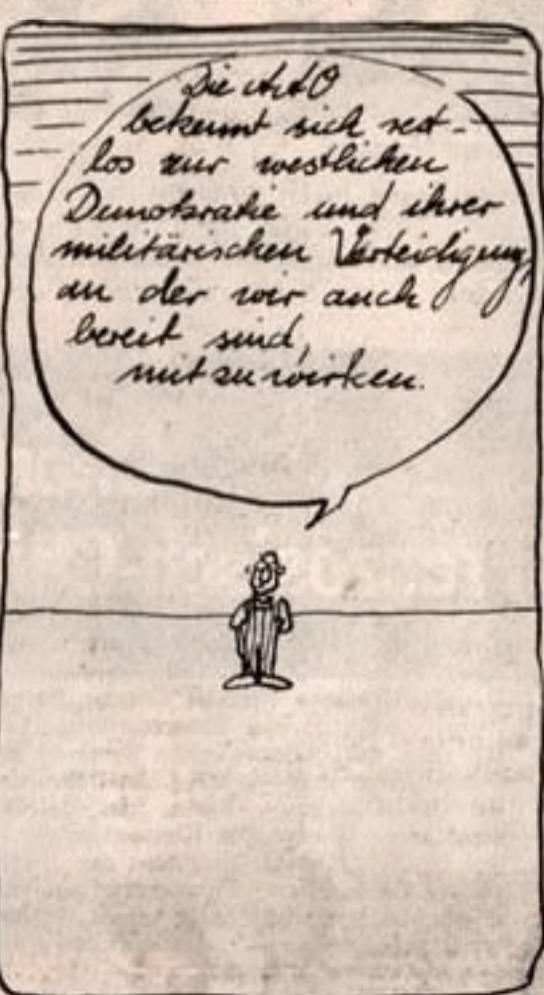 Die AAO
bekennt sich rest-
los zur westlichen
Demokratie und ihrer
militärischen Verteidigung,
an der wir auch
bereit sind,
mitzuwirken.